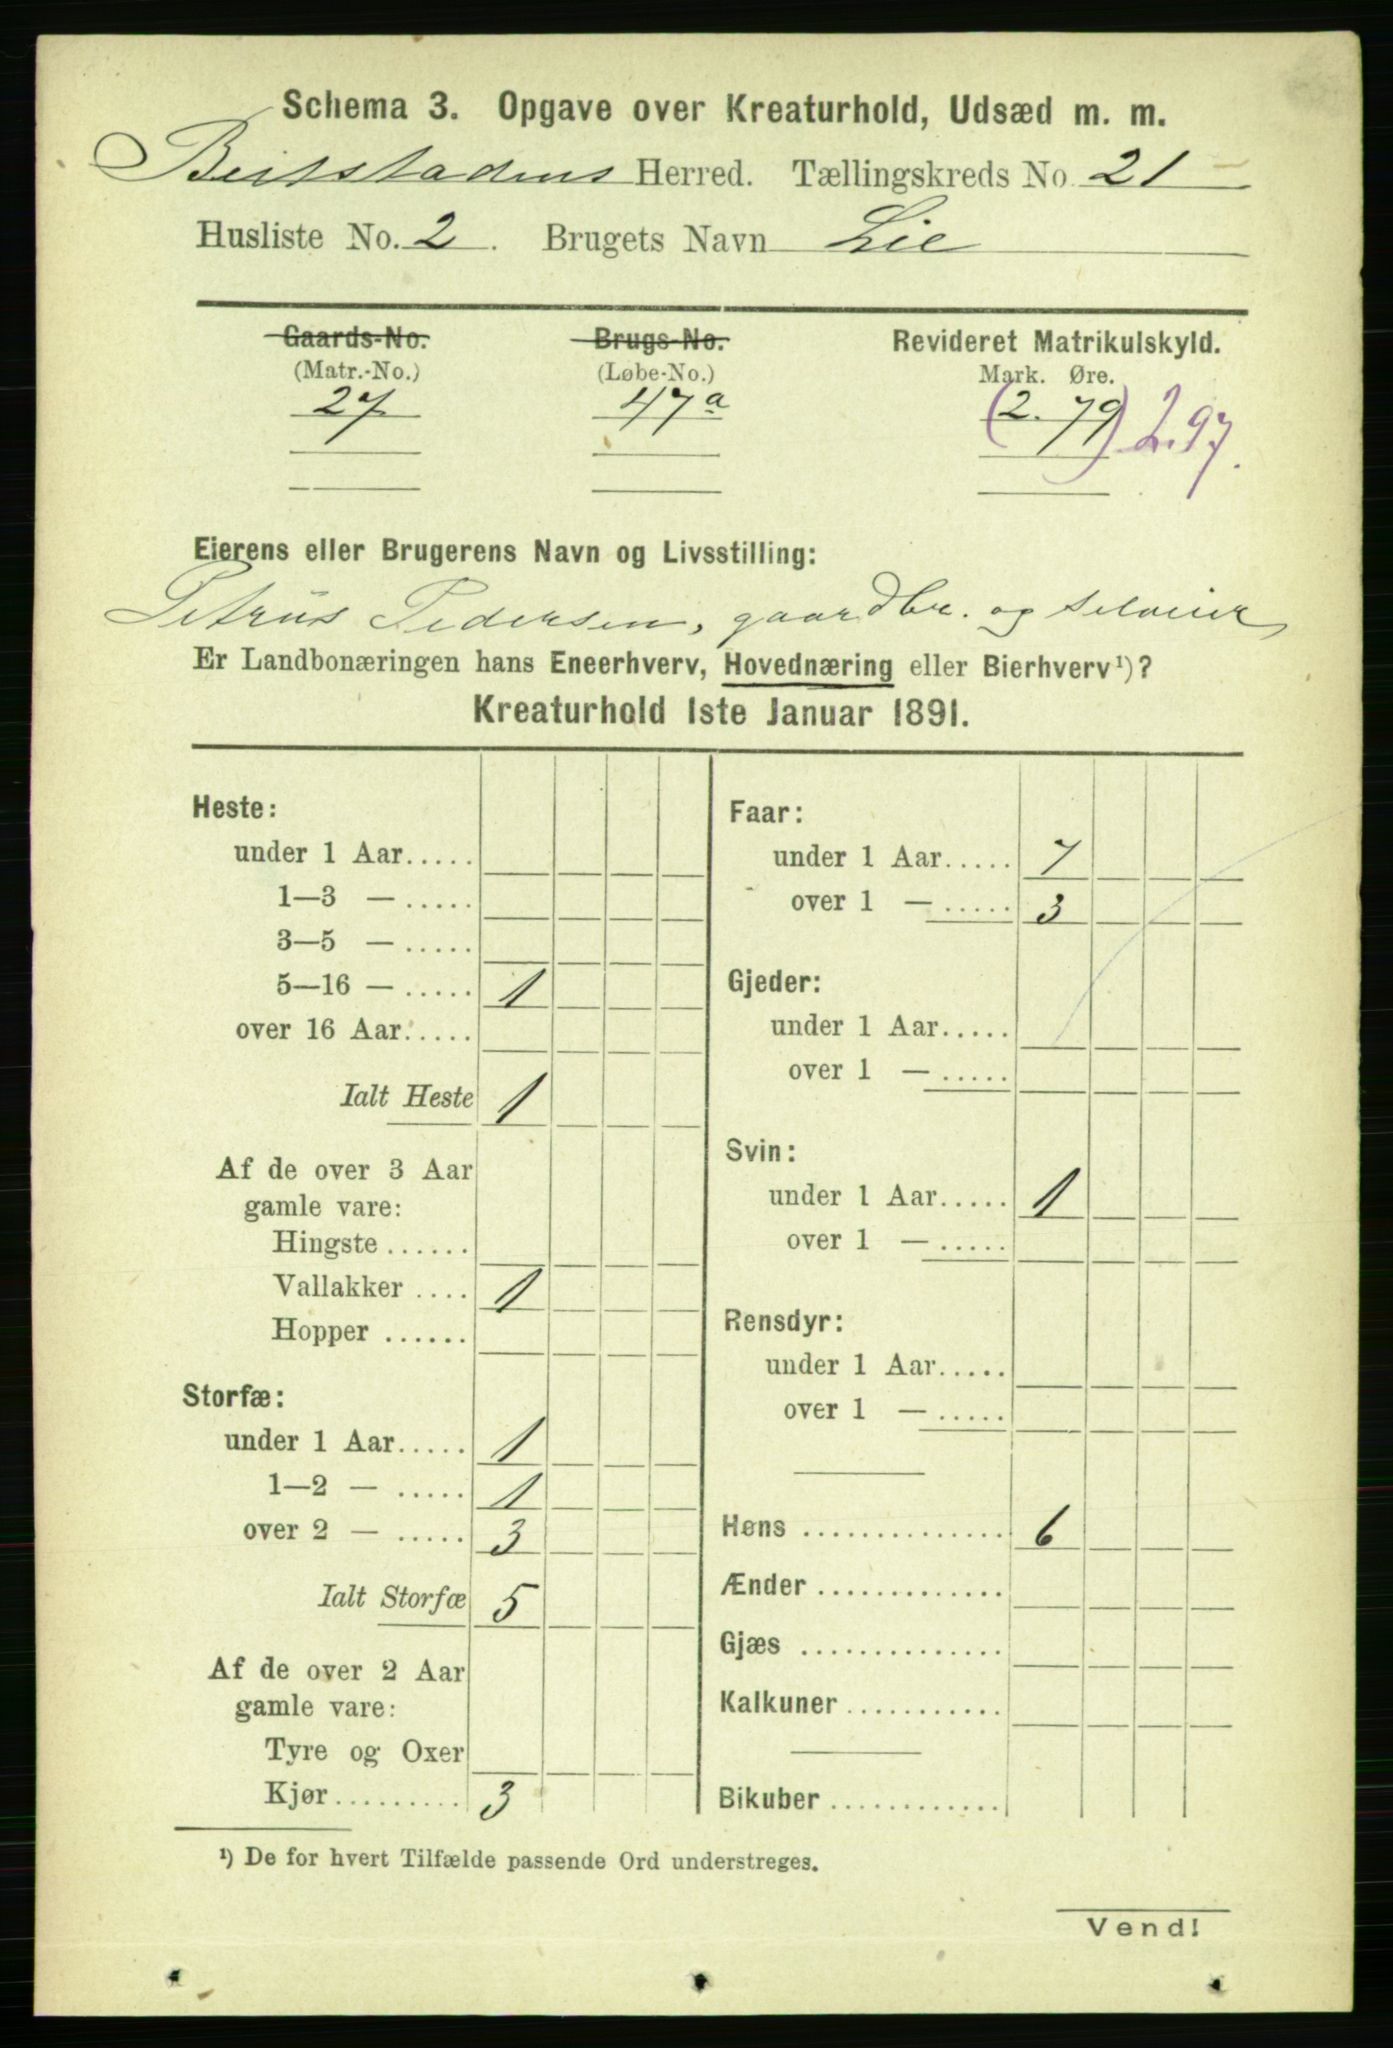 Schema 3. Opgave over Kreaturhold, Udsæd m. m.
Beitstadens Herred. Tællingskreds No. 21
Husliste No. 2. Brugets Navn Lie
Gaards-No. Brugs-No. Revideret Matrikulskyld.
(Matr.-No.) (Løbe-No.) Mark. Øre.
27 47a (2. 79) 2.97.
Eierens eller Brugerens Navn og Livsstilling:
Petrus Pedersen, gaardbr. og selveier
Er Landbonæringen hans Eneerhverv, Hovednæring eller Bierhverv¹)?
Kreaturhold 1ste Januar 1891.
Heste:
under 1 Aar.....
1—3 — .....
3—5 — .....
5—16 — ..... 1
over 16 Aar.....
Ialt Heste 1
Af de over 3 Aar
gamle vare:
Hingste ......
Vallakker .... 1
Hopper ......
Storfæ:
under 1 Aar..... 1
1—2 — ..... 1
over 2 — ..... 3
Ialt Storfæ 5
Af de over 2 Aar
gamle vare:
Tyre og Oxer
Kjør.......... 3
Faar:
under 1 Aar..... 7
over 1 — ..... 3
Gjeder:
under 1 Aar.....
over 1 — .....
Svin:
under 1 Aar..... 1
over 1 — .....
Rensdyr:
under 1 Aar.....
over 1 — .....
Høns .............. 6
Ænder .............
Gjæs ..............
Kalkuner ...........
Bikuber ............
¹) De for hvert Tilfælde passende Ord understreges.
Vend!